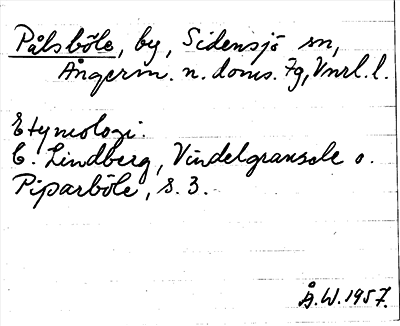 Pålsböle, by, Sidensjö sn,
Ångerm. n. doms. 7g, Vnrl. l.
Etymologi:
C. Lindberg, Vindelgransele o.
Piparböle, s. 3.
Å.W. 1957.